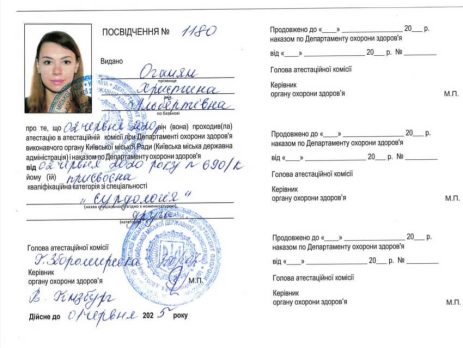 ПОСВІДЧЕННЯ № 1180
Видано Оганян
прізвище
Христина
Альбертівна
по батькові
про те, що 02 червня 2020 він (вона) проходив(ла)
атестацію в атестаційній комісії при Департаменті охорони здоров'я
виконавчого органу Київської міської Ради (Київська міська державна
адміністрація) і наказом по Департаменту охорони здоров'я
від 02 червня 2020 року № 690/к
йому (їй) присвоєна
кваліфікаційна категорія зі спеціальності
„Сурдологія"
друга
Голова атестаційної комісії
Керівник
органу охорони здоров'я
М.П.
Дійсне до 01 червня 2025 року
Продовжено до «____» ____________ 20___ р.
наказом по Департаменту охорони здоров'я
від «____» ____________ 20___ р. № ____
Голова атестаційної комісії
Керівник
органу охорони здоров'я
М.П.
Продовжено до «____» ____________ 20___ р.
наказом по Департаменту охорони здоров'я
від «____» ____________ 20___ р. № ____
Голова атестаційної комісії
Керівник
органу охорони здоров'я
М.П.
Продовжено до «____» ____________ 20___ р.
наказом по Департаменту охорони здоров'я
від «____» ____________ 20___ р. № ____
Голова атестаційної комісії
Керівник
органу охорони здоров'я
М.П.